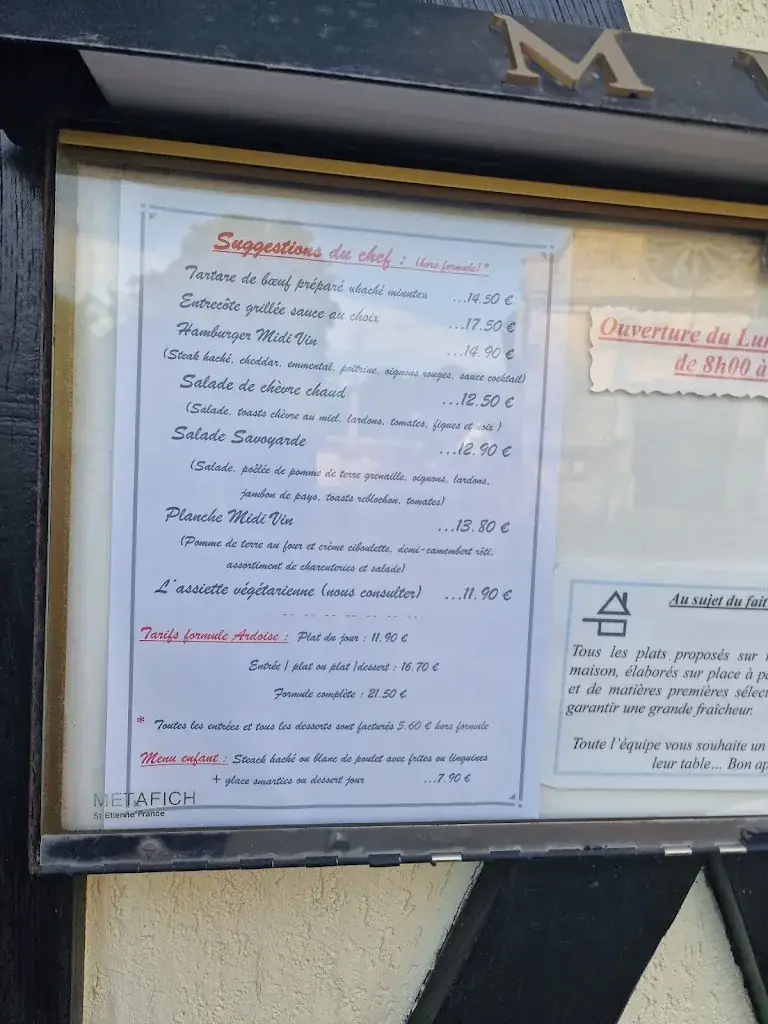 M
Suggestions du chef : (hors formule) *
Tartare de bœuf préparé «haché minute» ...14.50 €
Entrecôte grillée sauce au choix ...17.50 €
Hamburger Midi Vin ...14.90 €
(Steak haché, cheddar, emmental, poitrine, oignons rouges, sauce cocktail)
Salade de chèvre chaud ...12.50 €
(Salade, toasts chèvre au miel, lardons, tomates, figues et noix )
Salade Savoyarde ...12.90 €
(Salade, poêlée de pomme de terre grenaille, oignons, lardons,
jambon de pays, toasts reblochon, tomates)
Planche Midi Vin ...13.80 €
(Pomme de terre au four et crème ciboulette, demi-camembert rôti,
assortiment de charcuteries et salade)
L'assiette végétarienne (nous consulter) ...11.90 €
Tarifs formule Ardoise : Plat du jour : 11.90 €
Entrée / plat ou plat /dessert : 16.70 €
Formule complète : 21.50 €
* Toutes les entrées et tous les desserts sont facturés 5.60 € hors formule
Menu enfant : Steack haché ou blanc de poulet avec frites ou linguines
+ glace smarties ou dessert jour ...7.90 €
METAFICH
St Etienne France
Ouverture du Lun
de 8h00 à
Au sujet du fait
Tous les plats proposés sur
maison, élaborés sur place à
et de matières premières
garantir une grande fraîcheur.
Toute l'équipe vous souhaite un
leur table... Bon ap